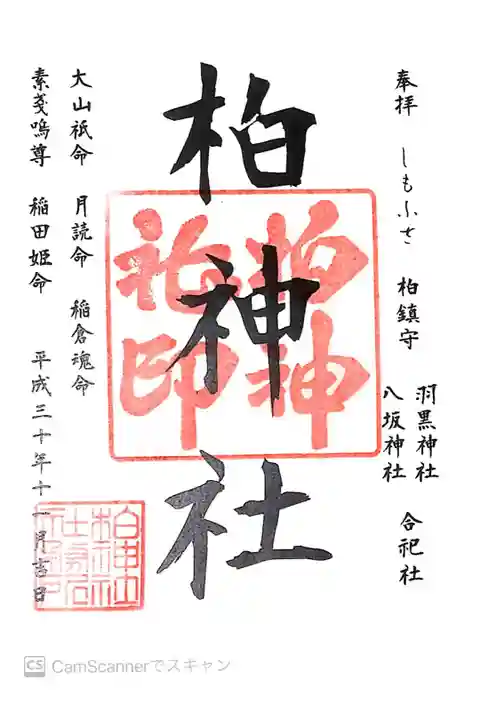 奉拝 しもふさ 柏鎮守 羽黒神社 八坂神社 合祀社
柏神社
柏神社印
大山祇命 月読命 稲倉魂命
素戔嗚尊 稲田姫命 平成三十年十一月吉日
CS CamScannerでスキャン